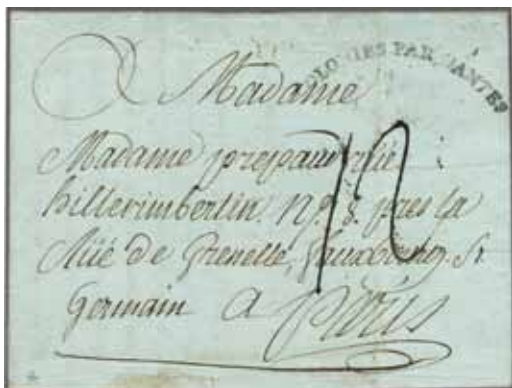 COLONIES PAR NANTES
A Madame
Madame prejpaud rüe
hillerimbertin. N.º 8. pres la
Rüe de Grenelle, fauxbourg. St
Germain a Paris
12